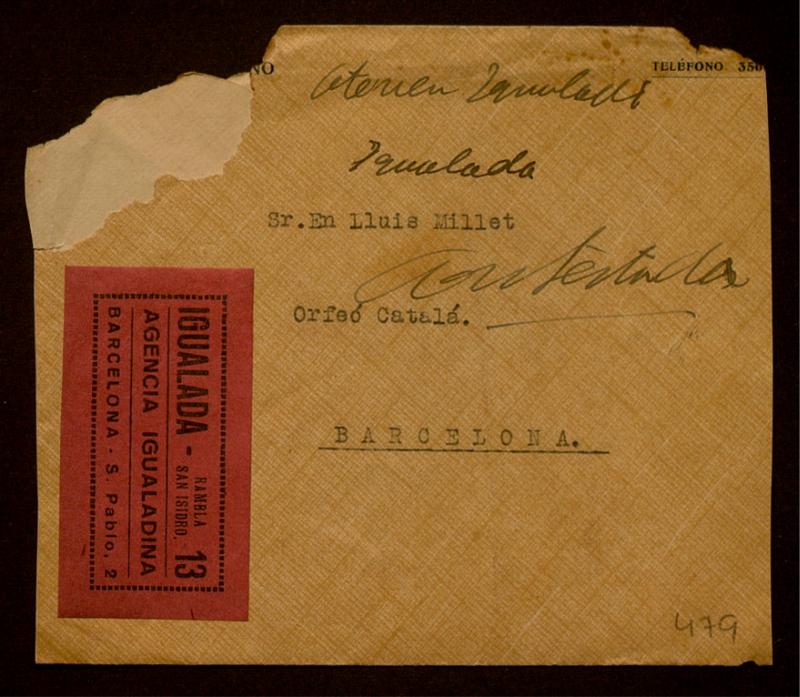 NO
TELÉFONO 350
Ateneu Igualadi
Igualada
Sr.En Lluis Millet
Contestada
Orfeó Catalá.
BARCELONA.
IGUALADA - RAMBLA SAN ISIDRO, 13
AGENCIA IGUALADINA
BARCELONA - S. Pablo, 2
479